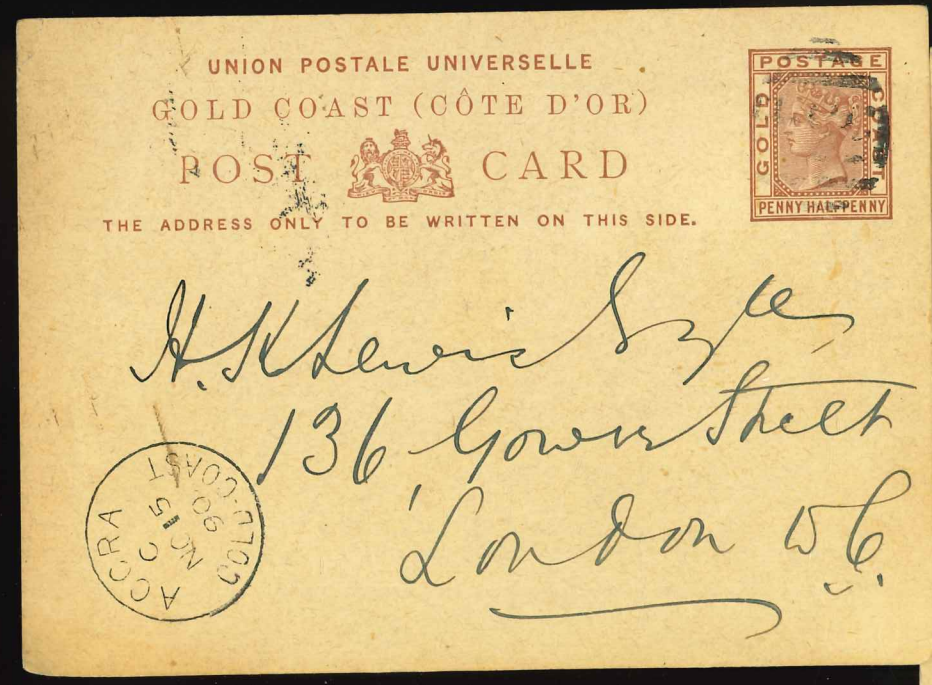 UNION POSTALE UNIVERSELLE
GOLD COAST (CÔTE D'OR)
POST CARD
THE ADDRESS ONLY TO BE WRITTEN ON THIS SIDE.
POSTAGE
GOLD
COAST
PENNY HALFPENNY
H. K Lewis Esqre
136 Gower Street
London W.C.
ACCRA
C
NO 15
90
GOLD-COAST